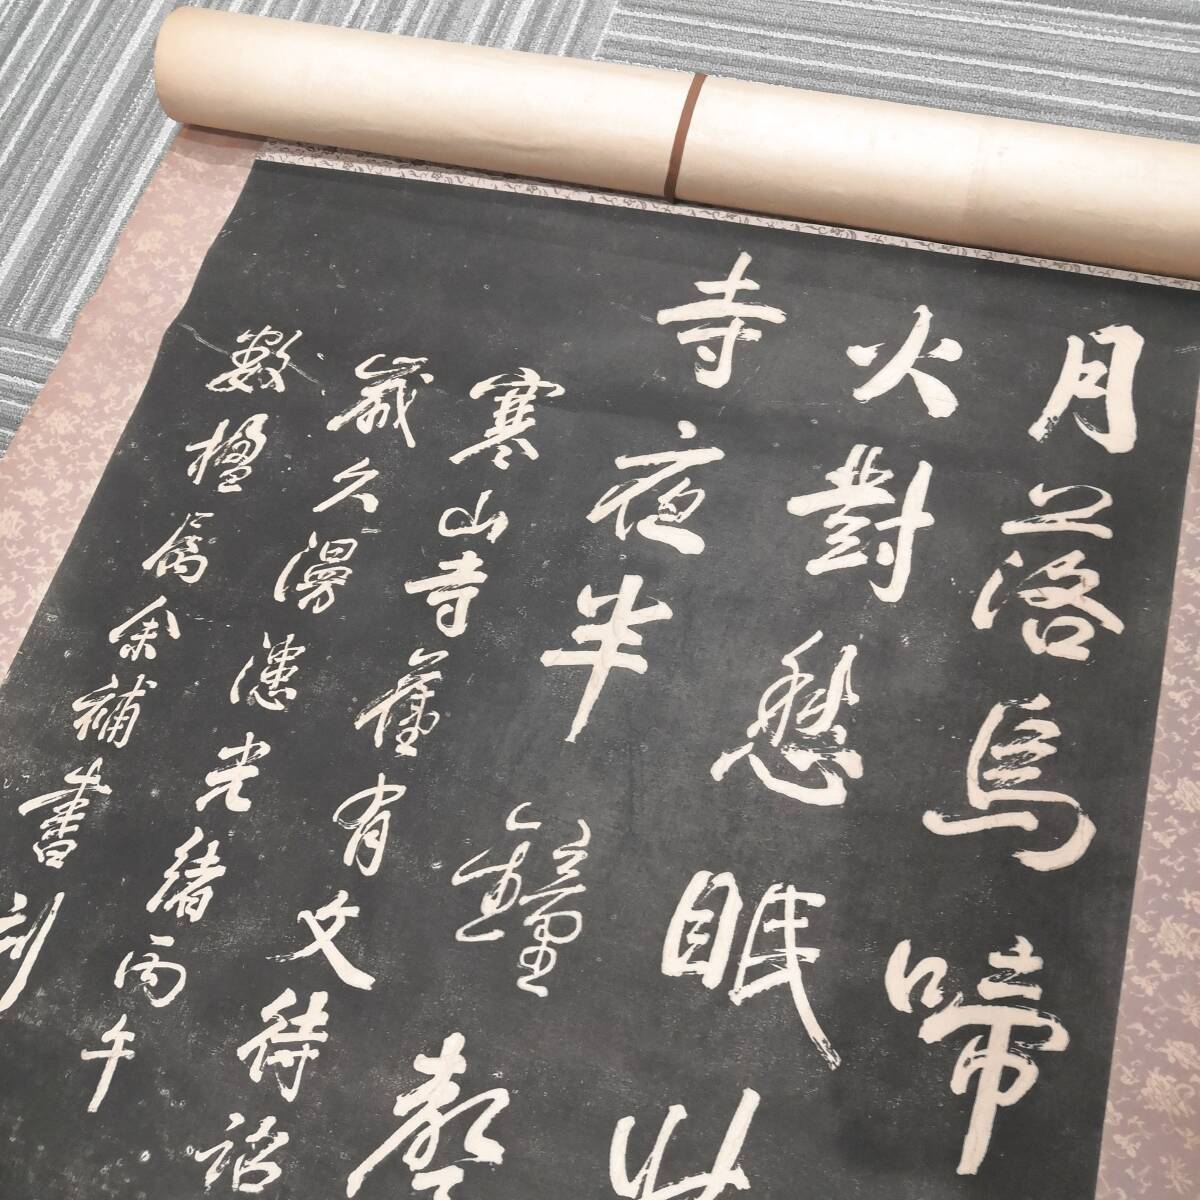 月落烏啼
火對愁眠
寺夜半鐘聲
寒山寺舊有文待詔
歲久漫漶光緒丙午
數楹屬余補書刻